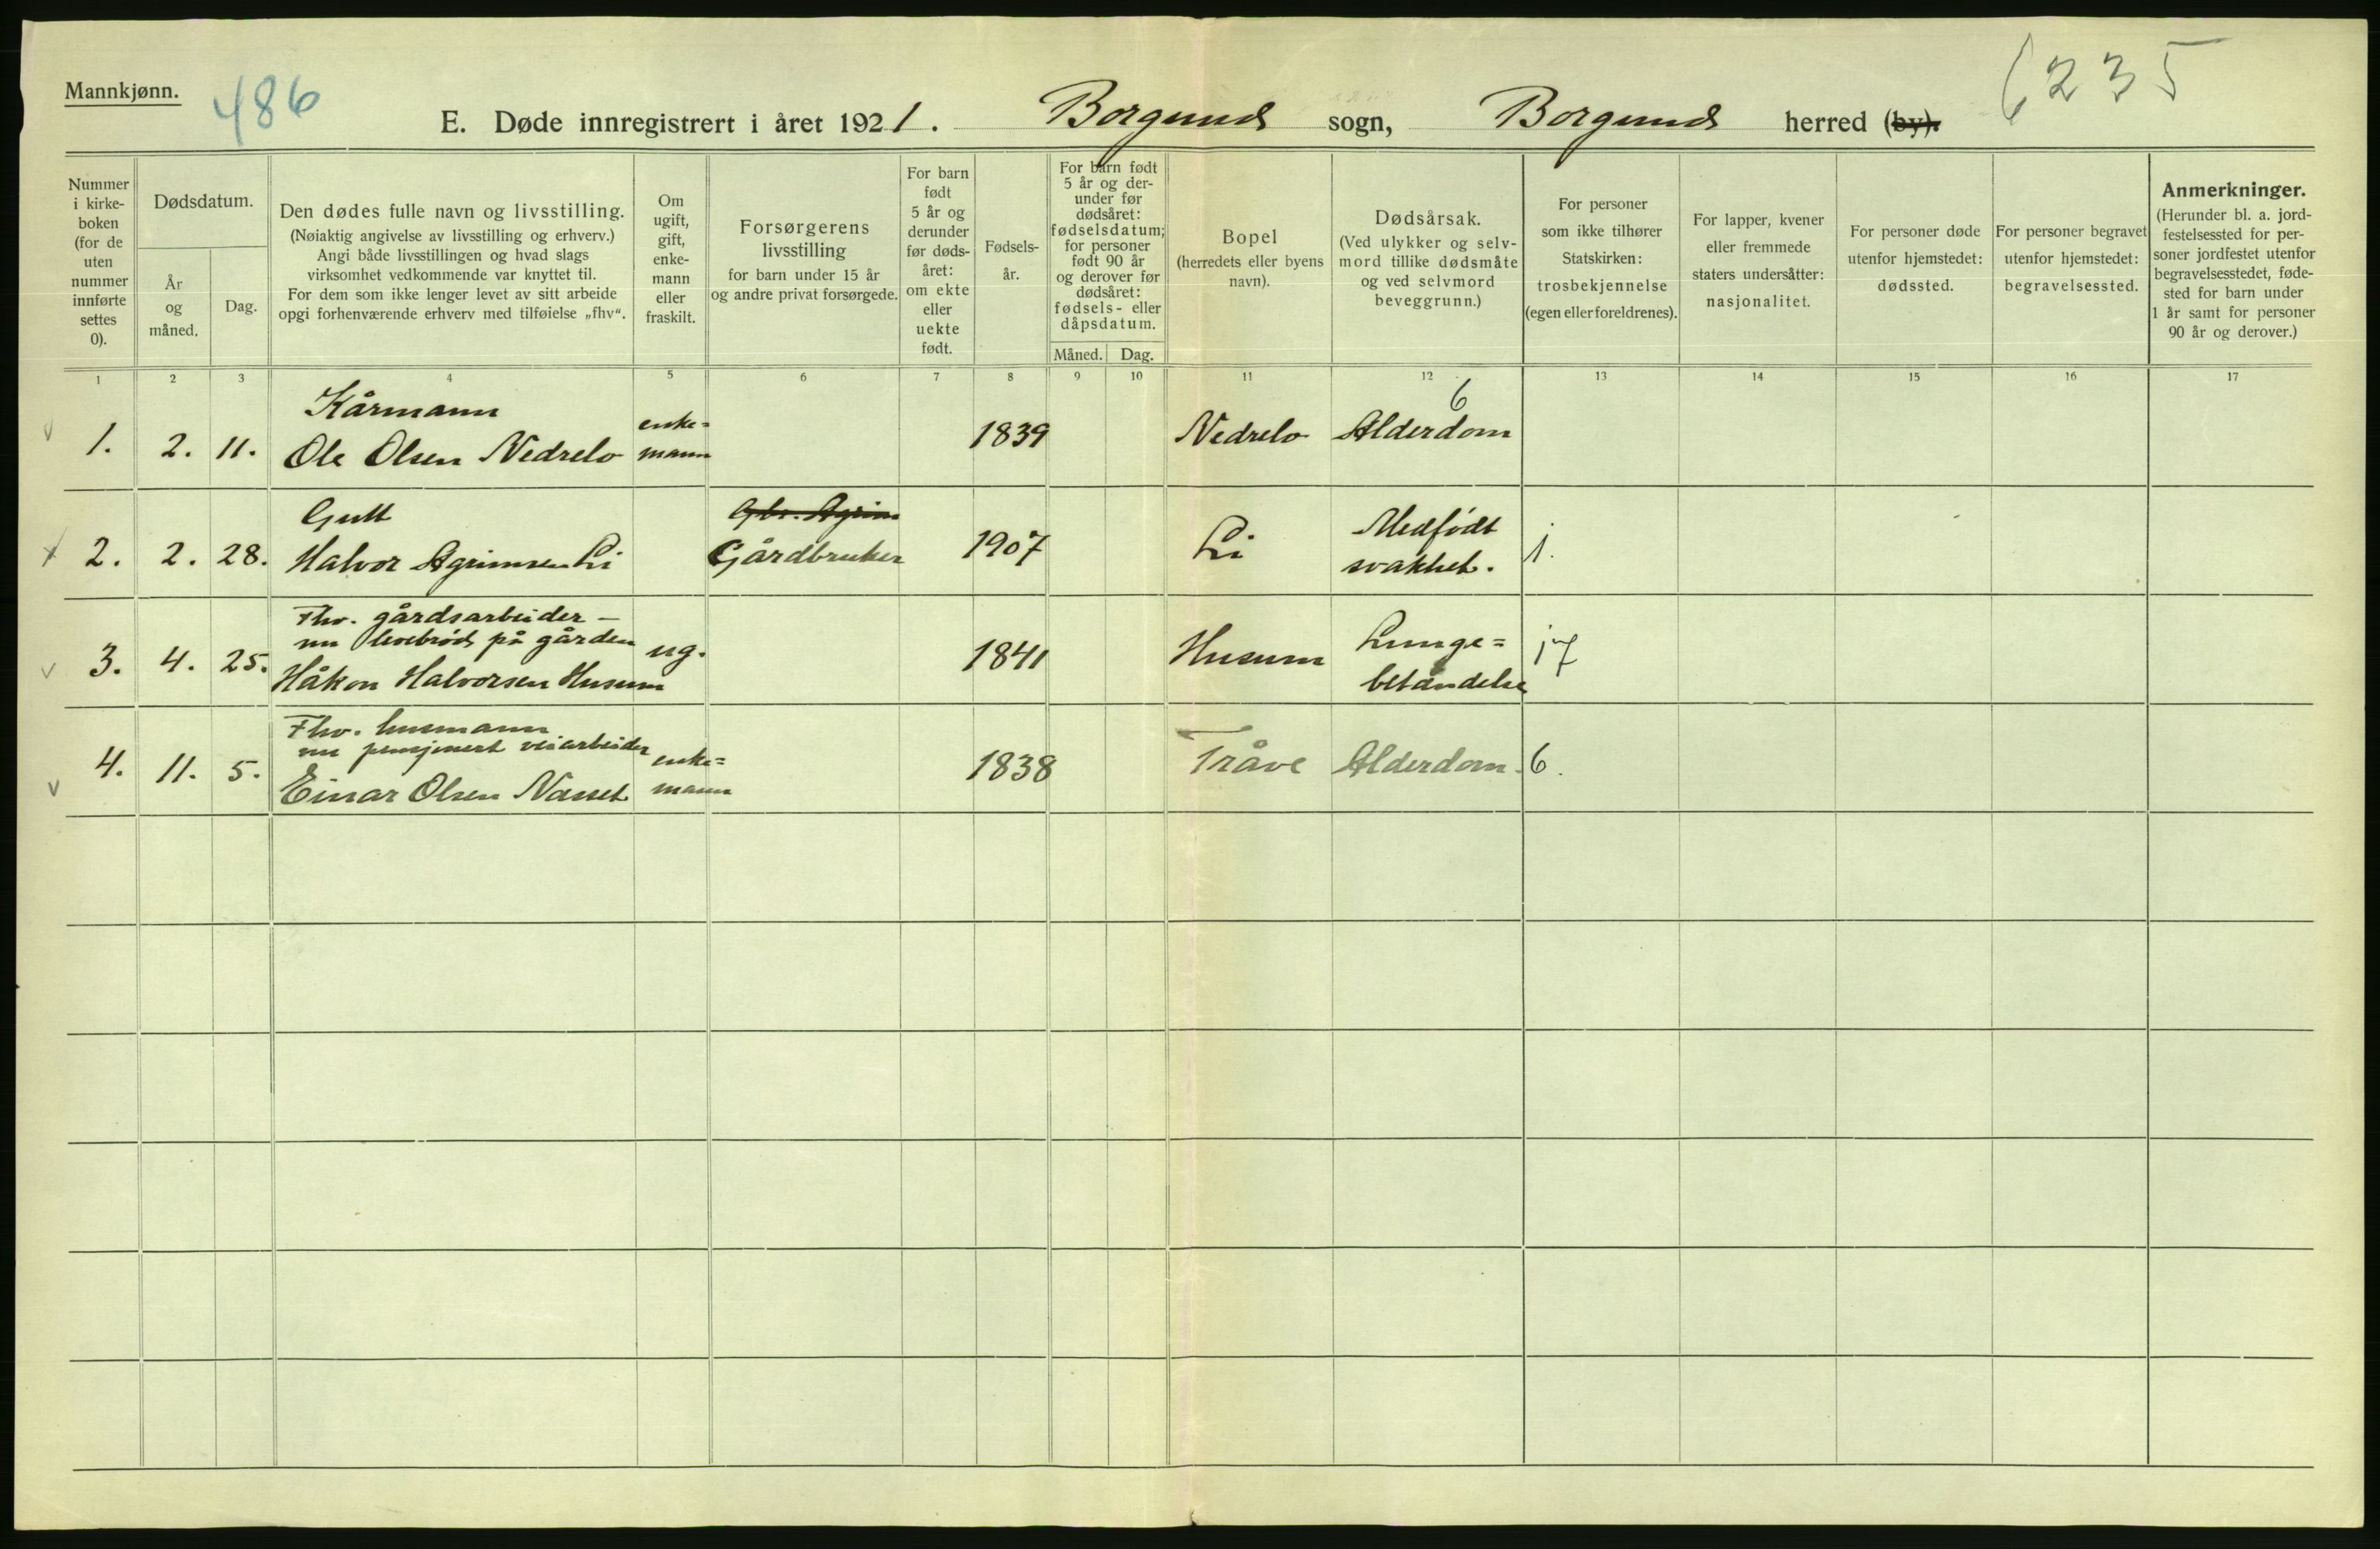 Mannkjønn.
486
6235
E. Døde innregistrert i året 1921. Borgund sogn, Borgund herred (by).
Nummer
i kirke-
boken
(for de
uten
nummer
innførte
settes
0).
Dødsdatum.
År
og
måned.
Dag.
Den dødes fulle navn og livsstilling.
(Nøiaktig angivelse av livsstilling og erhverv.)
Angi både livsstillingen og hvad slags
virksomhet vedkommende var knyttet til.
For dem som ikke lenger levet av sitt arbeide
opgi forhenværende erhverv med tilføielse „fhv“.
Om
ugift,
gift,
enke-
mann
eller
fraskilt.
Forsørgerens
livsstilling
for barn under 15 år
og andre privat forsørgede.
For barn
født
5 år og
derunder
før døds-
året:
om ekte
eller
uekte
født.
Fødsels-
år.
For barn født
5 år og der-
under før
dødsåret:
fødselsdatum;
for personer
født 90 år
og derover før
dødsåret:
fødsels- eller
dåpsdatum.
Måned. Dag.
Bopel
(herredets eller byens
navn).
Dødsårsak.
(Ved ulykker og selv-
mord tillike dødsmåte
og ved selvmord
beveggrunn.)
For personer
som ikke tilhører
Statskirken:
trosbekjennelse
(egen eller foreldrenes).
For lapper, kvener
eller fremmede
staters undersåtter:
nasjonalitet.
For personer døde
utenfor hjemstedet:
dødssted.
For personer begravet
utenfor hjemstedet:
begravelsessted.
Anmerkninger.
(Herunder bl. a. jord-
festelsessted for per-
soner jordfestet utenfor
begravelsesstedet, føde-
sted for barn under
1 år samt for personer
90 år og derover.)
1 2 3 4 5 6 7 8 9 10 11 12 13 14 15 16 17
Kårmann enke= 6
1. 2. 11. Ole Olsen Nedrelo mann 1839 Nedrelo Alderdom
Gutt Gbr. Agrim Medfødt
2. 2. 28. Halvor Agrimsen Li Gårdbruker 1907 Li svakhet. 1.
Fhv. gårdsarbeider —
nu levebrød på gården ug. Lunge= 17
3. 4. 25. Håkon Halvorsen Husum 1841 Husum betændelse
Fhv. husmann
nu pensjonert veiarbeider enke=
4. 11. 5. Einar Olsen Næsset mann 1838 Tråve Alderdom. 6.